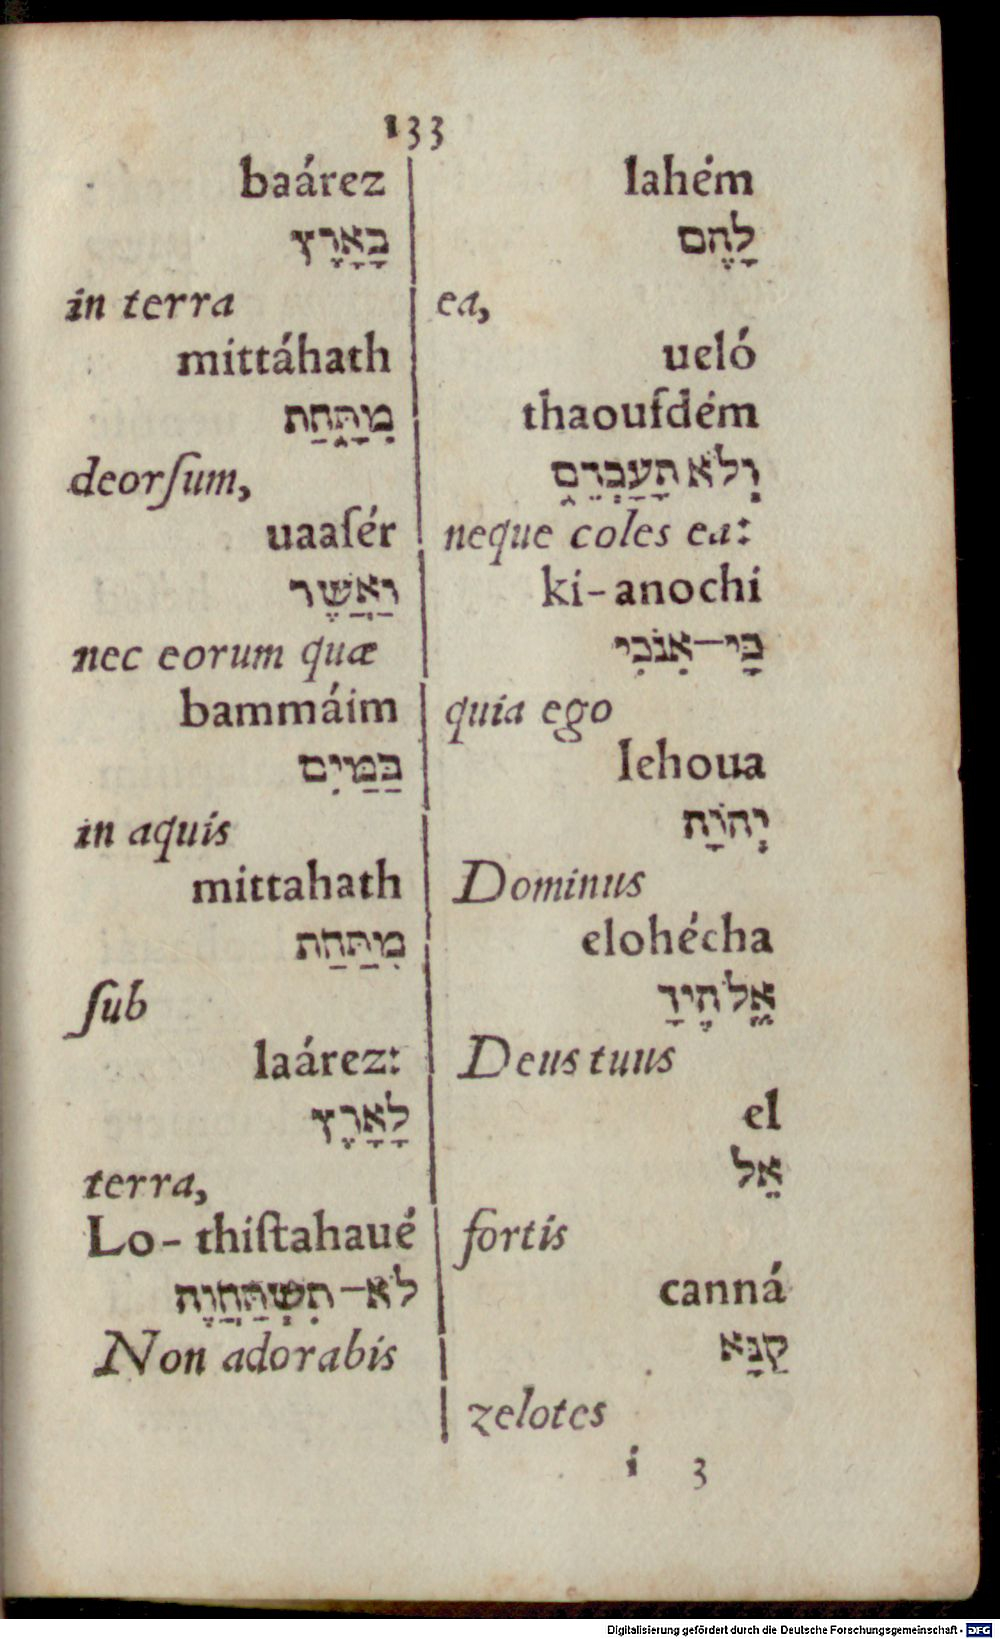 133
baárez
בָּאָרֶץ
in terra
mittáhath
מִתָּחַת
deorſum,
uaaſér
וַאֲשֶׁר
nec eorum quæ
bammáim
בַּמַּיִם
in aquis
mittahath
מִתַּחַת
ſub
laárez:
לָאָרֶץ
terra,
Lo-thiſtahaué
לֹא־תִשְׁתַּחֲוֶה
Non adorabis
lahém
לָהֶם
ea,
ueló
thaouſdém
וְלֹא תָעַבְדֵם
neque coles ea:
ki-anochi
כִּי־אנֹכִי
quia ego
Iehoua
יְהוָֹה
Dominus
elohécha
אֱלֹהֶיךָ
Deus tuus
el
אֵל
fortis
canná
קַנָּא
zelotes
i 3
Digitalisierung gefördert durch die Deutsche Forschungsgemeinschaft - DFG